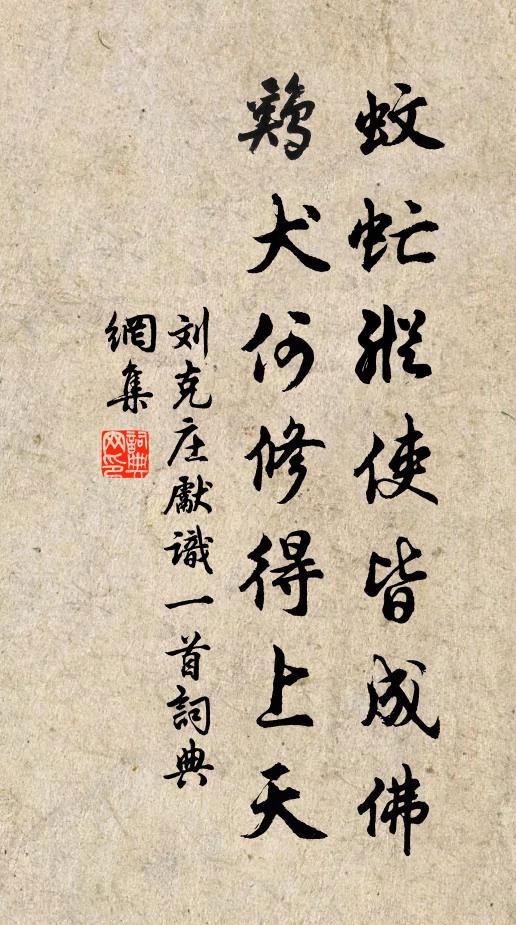 蚊虻縱使皆成佛
鷄犬何修得上天
刘克庄獻識一首詞典
網集
詞典网印